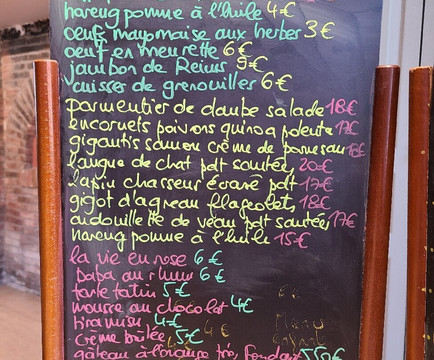 hareng pomme à l'huile 4€
oeufs mayomaise aux herbes 3€
oeuf en meurette 6€
jambon de Reims 9€
cuisses de grenouilles 6€
parmentier de daube salade 18€
encornets poivrons quinoa polenta 17€
gigantis saumon crème de parmesan 18€
langue de chat pdt sautées 20€
lapin chasseur écrasé pdt 17€
gigot d'agneau flageolets 18€
andouillette de veau pdt sautées 17€
hareng pomme à l'huile 15€
la vie en rose 6€
baba au rhum 6€
tarte tatin 5€
mousse au chocolat 4€
tiramisu 4€
crème brulée 5€
gâteau à l'orange